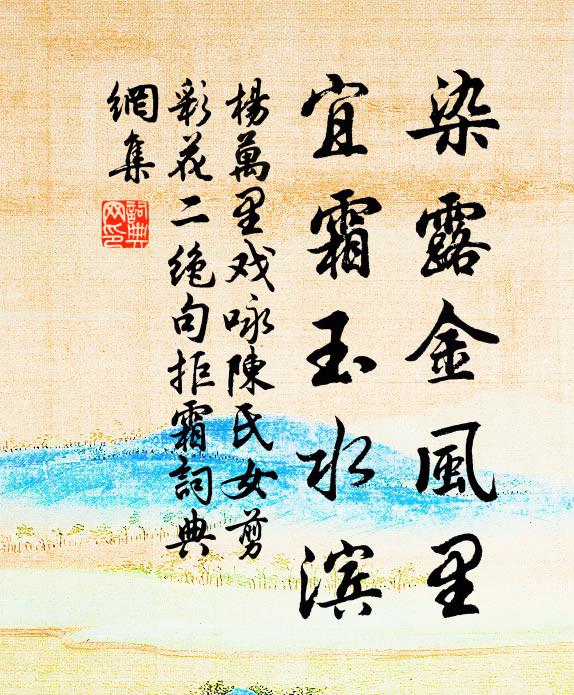 染露金風里
宜霜玉水滨
楊萬里戏咏陳氏女剪
彩花二绝句拒霜詞典
網集
詞典
网印